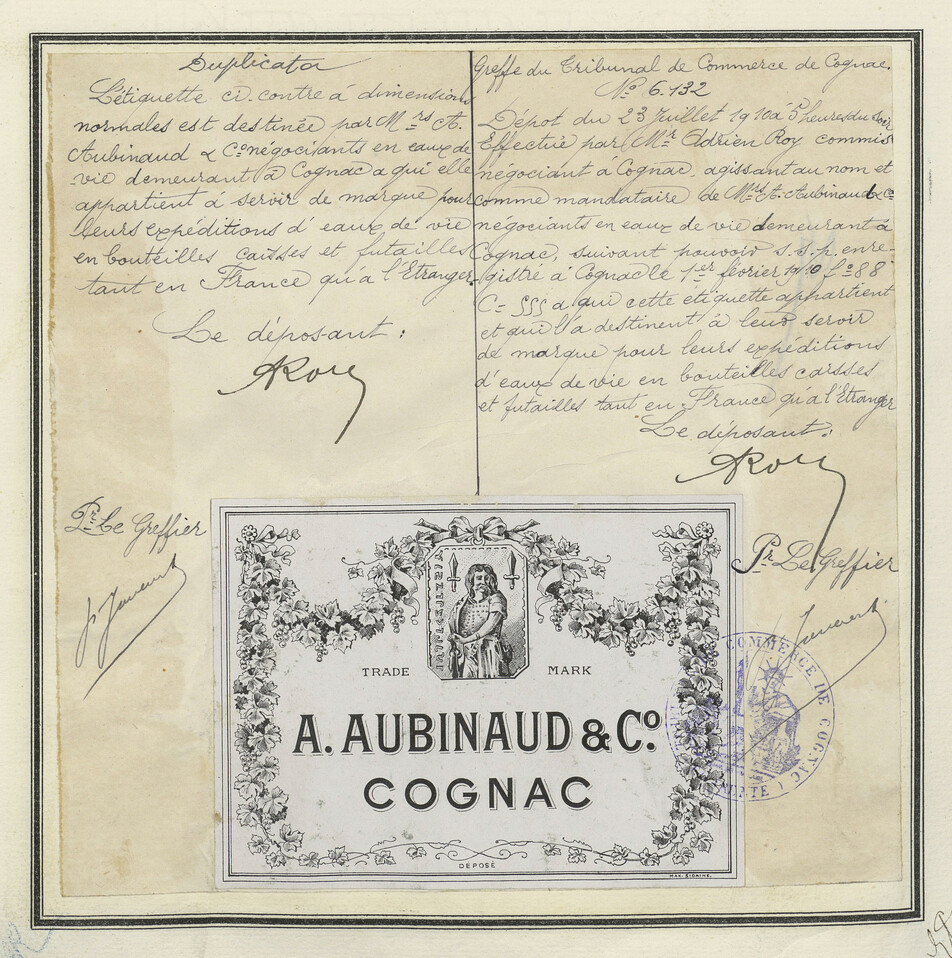 Duplicata
L'étiquette ci-contre à dimensions
normales est destinée par Mrs A.
Aubinaud & Co négociants en eaux de
vie demeurant à Cognac a qui elle
appartient à servir de marque pour
leurs expéditions d'eaux de vie
en bouteilles caisses et futailles
tant en France qu'à l'Etranger.
Le déposant:
ARoy
Pr Le Greffier
Greffe du Tribunal de Commerce de Cognac.
No 6.132
Dépot du 23 Juillet 1910 à 5 heures du soir
Effectué par Mr Adrien Roy commis
négociant à Cognac, agissant au nom et
comme mandataire de Mrs A. Aubinaud & Co
négociants en eaux de vie demeurant à
Cognac, suivant pouvoir s.s.p. enre
gistré à Cognac le 1er février 1910 fo 88
a qui cette étiquette appartient
et qui l'a destinent à leur servir
de marque pour leurs expéditions
d'eaux de vie en bouteilles caisses
et futailles tant en France qu'à l'Etranger
Le déposant:
ARoy
Pr Le Greffier
TRADE MARK
A. AUBINAUD & Co.
COGNAC
DÉPOSÉ
COMMERCE DE COGNAC